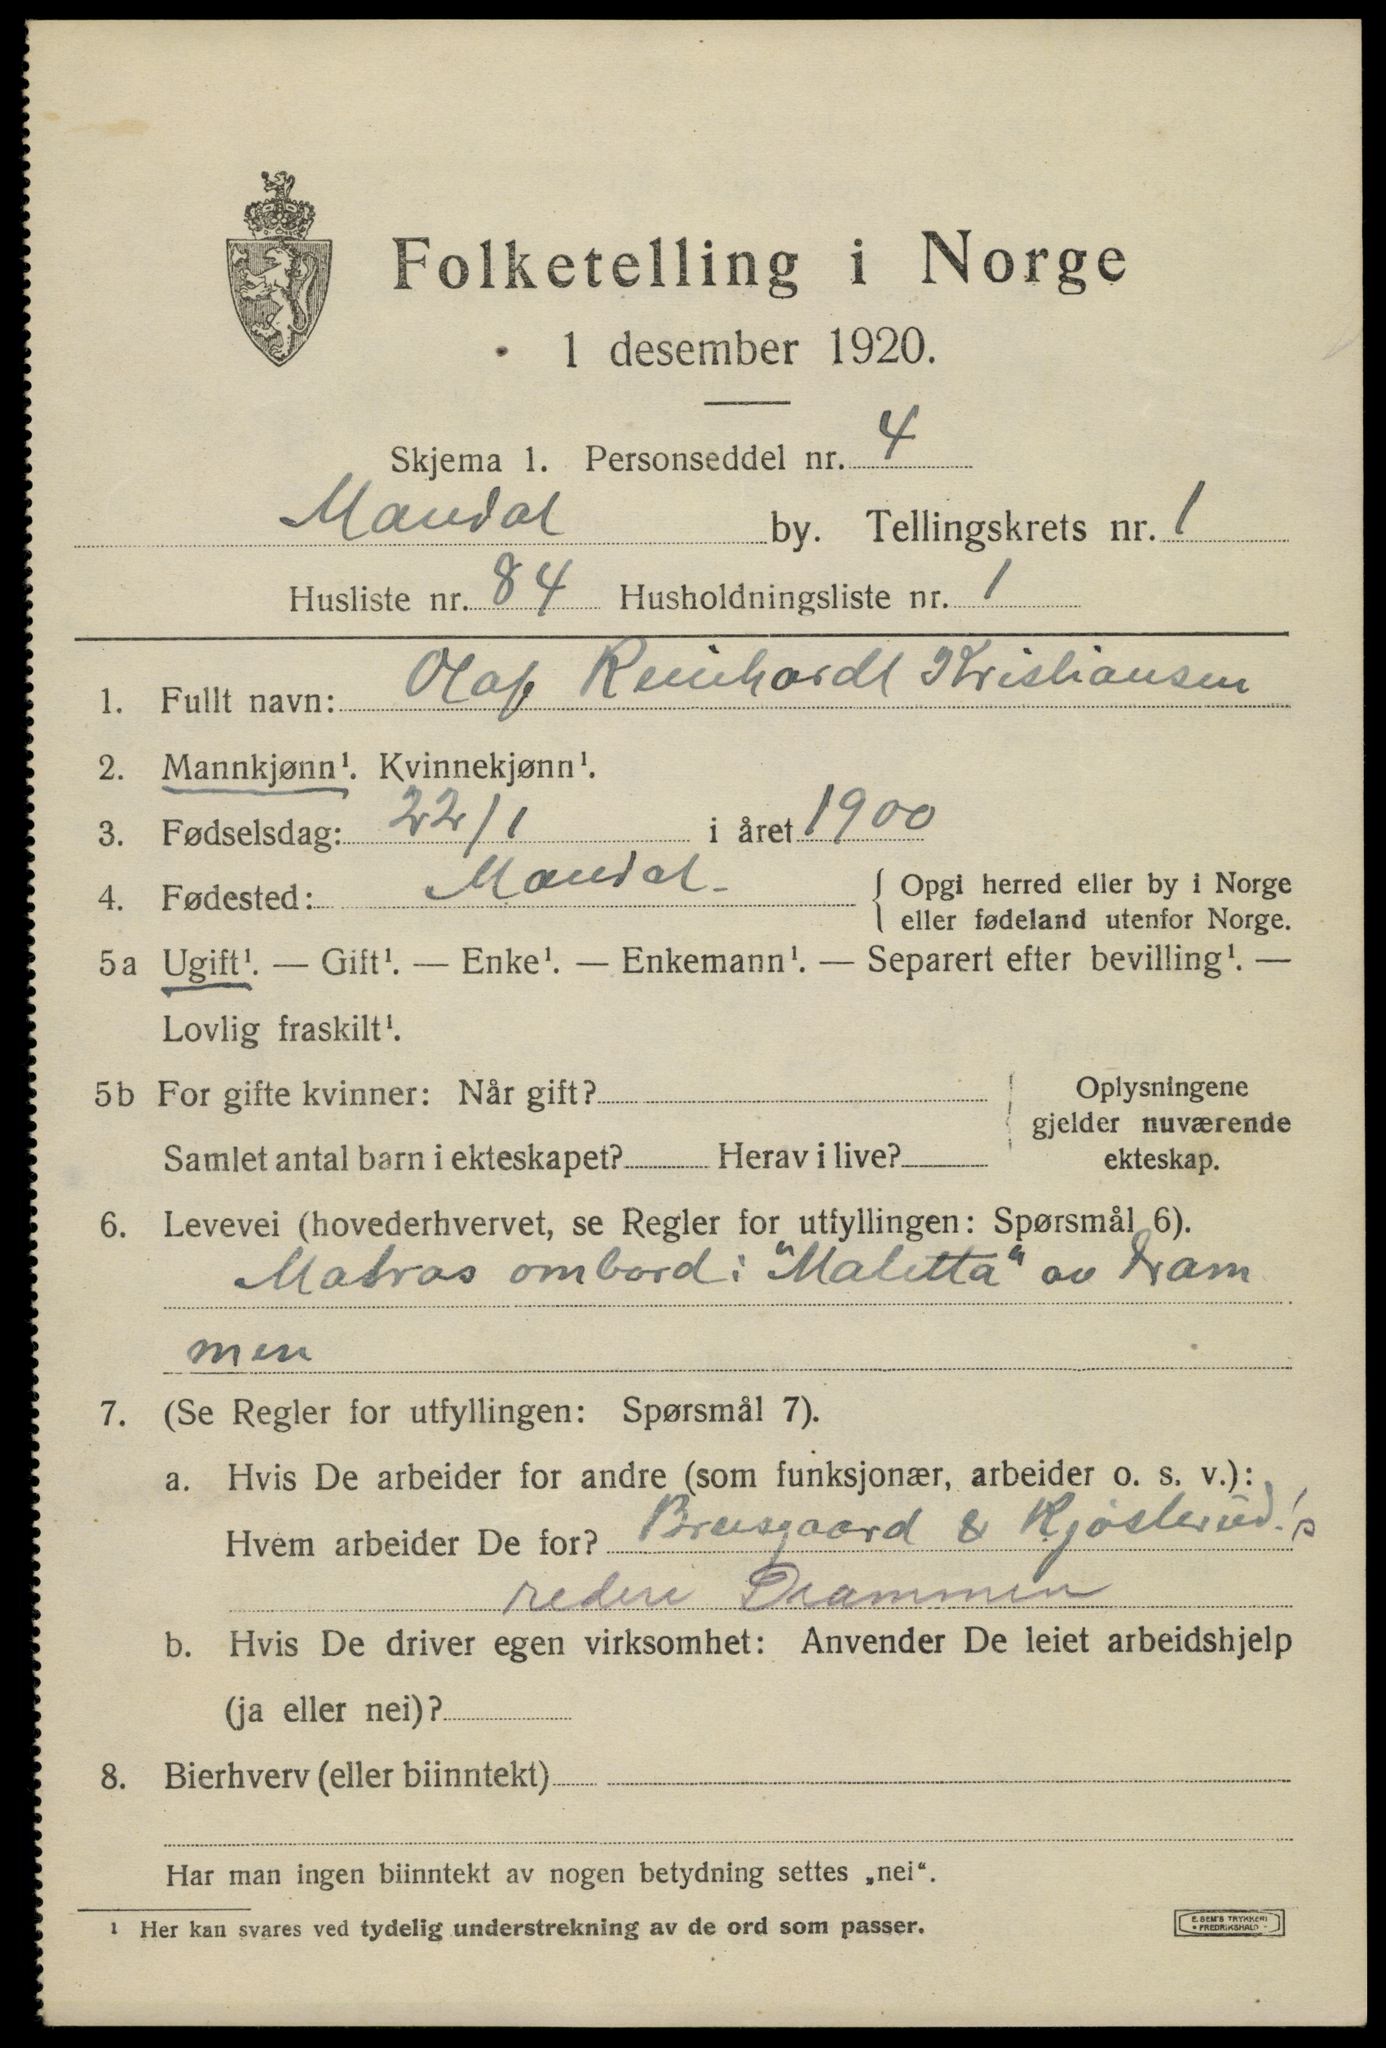 Folketelling i Norge
1 desember 1920.
Skjema 1. Personseddel nr. 4
Mandal by. Tellingskrets nr. 1
Husliste nr. 84 Husholdningsliste nr. 1
1. Fullt navn: Olaf Reinhardt Kristiansen
2. Mannkjønn¹. Kvinnekjønn¹.
3. Fødselsdag: 22/1 i året 1900
4. Fødested: Mandal. { Opgi herred eller by i Norge
eller fødeland utenfor Norge.
5a Ugift¹. — Gift¹. — Enke¹. — Enkemann¹. — Separert efter bevilling¹. —
Lovlig fraskilt¹.
5b For gifte kvinner: Når gift?
Samlet antal barn i ekteskapet? Herav i live?
Oplysningene
gjelder nuværende
ekteskap.
6. Levevei (hovederhvervet, se Regler for utfyllingen: Spørsmål 6).
Matros ombord i "Maletta" av Dram
men
7. (Se Regler for utfyllingen: Spørsmål 7).
a. Hvis De arbeider for andre (som funksjonær, arbeider o. s. v.):
Hvem arbeider De for? Bruusgaard & Kjøsterud's
rederi Drammen
b. Hvis De driver egen virksomhet: Anvender De leiet arbeidshjelp
(ja eller nei)?
8. Bierhverv (eller biinntekt)
Har man ingen biinntekt av nogen betydning settes „nei“.
¹ Her kan svares ved tydelig understrekning av de ord som passer.
E. SEM'S TRYKKERI
• FREDRIKSHALD •